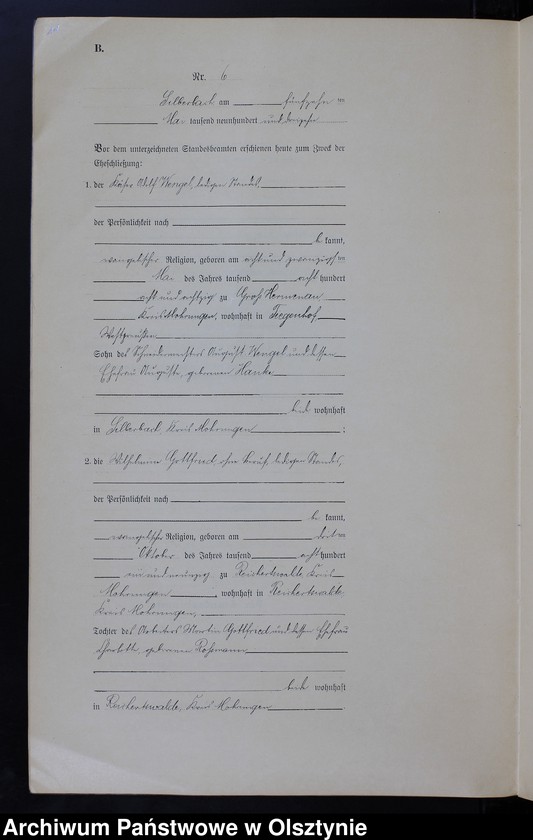 B.
Nr. 6
Silberbach am fünfzehn ten
Mai tausend neunhundert und dreizehn
Vor dem unterzeichneten Standesbeamten erschienen heute zum Zweck der
Eheschließung:
1. der Käser Adolf Wengel, ledigen Standes,
der Persönlichkeit nach
be kannt,
evangelischer Religion, geboren am acht und zwanzigs ten
Mai des Jahres tausend acht hundert
acht und achtzig zu Groß Hermenau
Kreis Mohrungen, wohnhaft in Tiegenhof,
Westpreußen
Sohn des Schneidermeisters August Wengel und dessen
Ehefrau Auguste, geborenen Hanke
beide wohnhaft
in Silberbach, Kreis Mohrungen ;
2. die Wilhelmine Gottfried, ohne Beruf, ledigen Standes,
der Persönlichkeit nach
be kannt,
evangelischer Religion, geboren am dritten
Oktober des Jahres tausend acht hundert
ein und neunzig zu Reichertswalde, Kreis
Mohrungen , wohnhaft in Reichertswalde,
Kreis Mohrungen,
Tochter des Arbeiters Martin Gottfried und dessen Ehefrau
Charlotte, geborenen
beide wohnhaft
in Reichertswalde, Kreis Mohrungen .
Archiwum Państwowe w Olsztynie